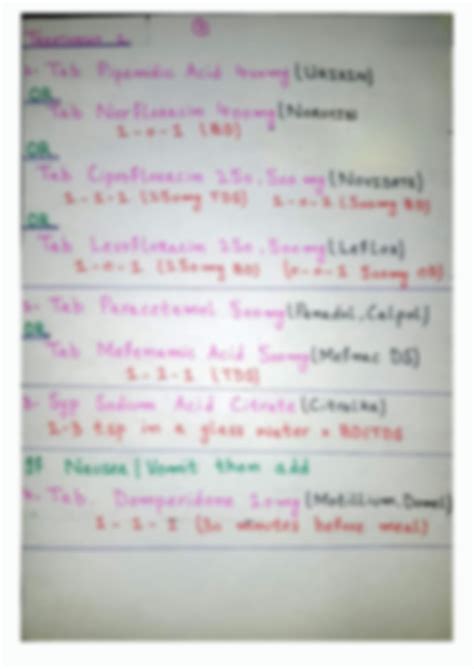 Treatment
1- Tab Pipemdic Acid 400mg (Urixin)
OR
Tab Norfloxacin 400mg (Noroxin
1-0-1 (BD)
OR
Tab Ciprofloxacin 250, 500mg (Novidate)
1-1-1 (250mg TDS) 1-0-1 (500mg BD)
OR
Tab Levofloxacin 250, 500mg (Leflox)
1-0-1 (250mg BD) (0-0-1 500mg OD)
2- Tab Paracetamol 500mg (Panadol, Calpol)
OR
Tab Mefenamic Acid 500mg (Mefnac DS)
1-1-1 (TDS)
3- Syp Sodium Acid Citrate (Citralka)
1-3 tsp in a glass water × BD/TDS
If Nausea/Vomit then add
Tab. Domperidone 10mg (Motillium, Domel)
1-1-1 (30 minutes before meal)